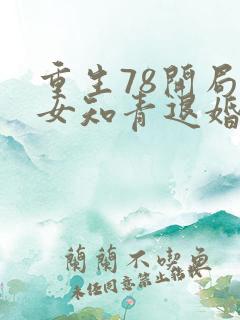 重生78開局
女知青退婚
蘭蘭不喫魚
未经同意禁止转载